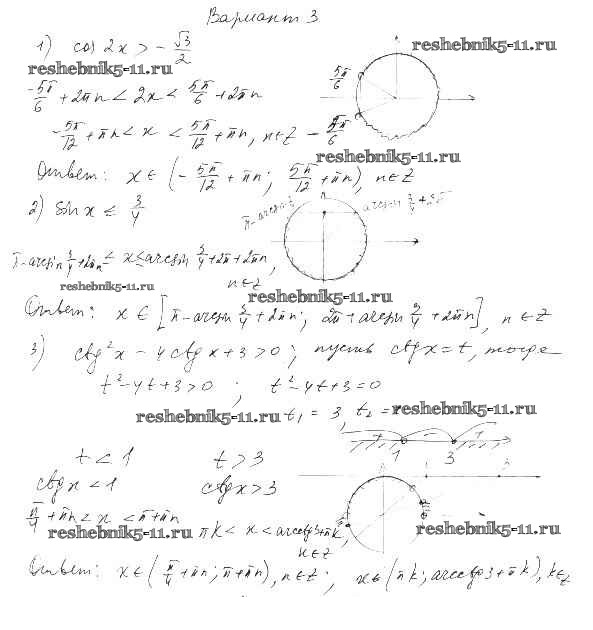 Вариант 3
1) cos 2x > - √3/2
reshebnik5-11.ru
reshebnik5-11.ru
-5π/6 + 2πn < 2x < 5π/6 + 2πn
5π/6
-5π/12 + πn < x < 5π/12 + πn, n∈Z
- 5π/6
reshebnik5-11.ru
Ответ: x ∈ (- 5π/12 + πn; 5π/12 + πn), n∈Z
2) sin x ≤ 3/4
π-arcsin 3/4
arcsin 3/4 + 2π
π-arcsin 3/4 + 2πn ≤ x ≤ arcsin 3/4 + 2π + 2πn,
n∈Z
reshebnik5-11.ru
reshebnik5-11.ru
Ответ: x ∈ [π-arcsin 3/4 + 2πn; 2π + arcsin 3/4 + 2πn], n ∈ Z
3) ctg²x - 4ctgx + 3 > 0; пусть ctgx = t, тогда
t² - 4t + 3 > 0; t² - 4t + 3 = 0
reshebnik5-11.ru t₁ = 3, t₂ = reshebnik5-11.ru
+ - +
1 3
t < 1 t > 3
ctgx < 1 ctgx > 3
1 3
π/4 + πn < x < π + πn
reshebnik5-11.ru
πk < x < arcctg3 + πk,
k∈Z
reshebnik5-11.ru
Ответ: x ∈ (π/4 + πn; π + πn), n∈Z; x ∈ (πk; arcctg3 + πk), k∈Z